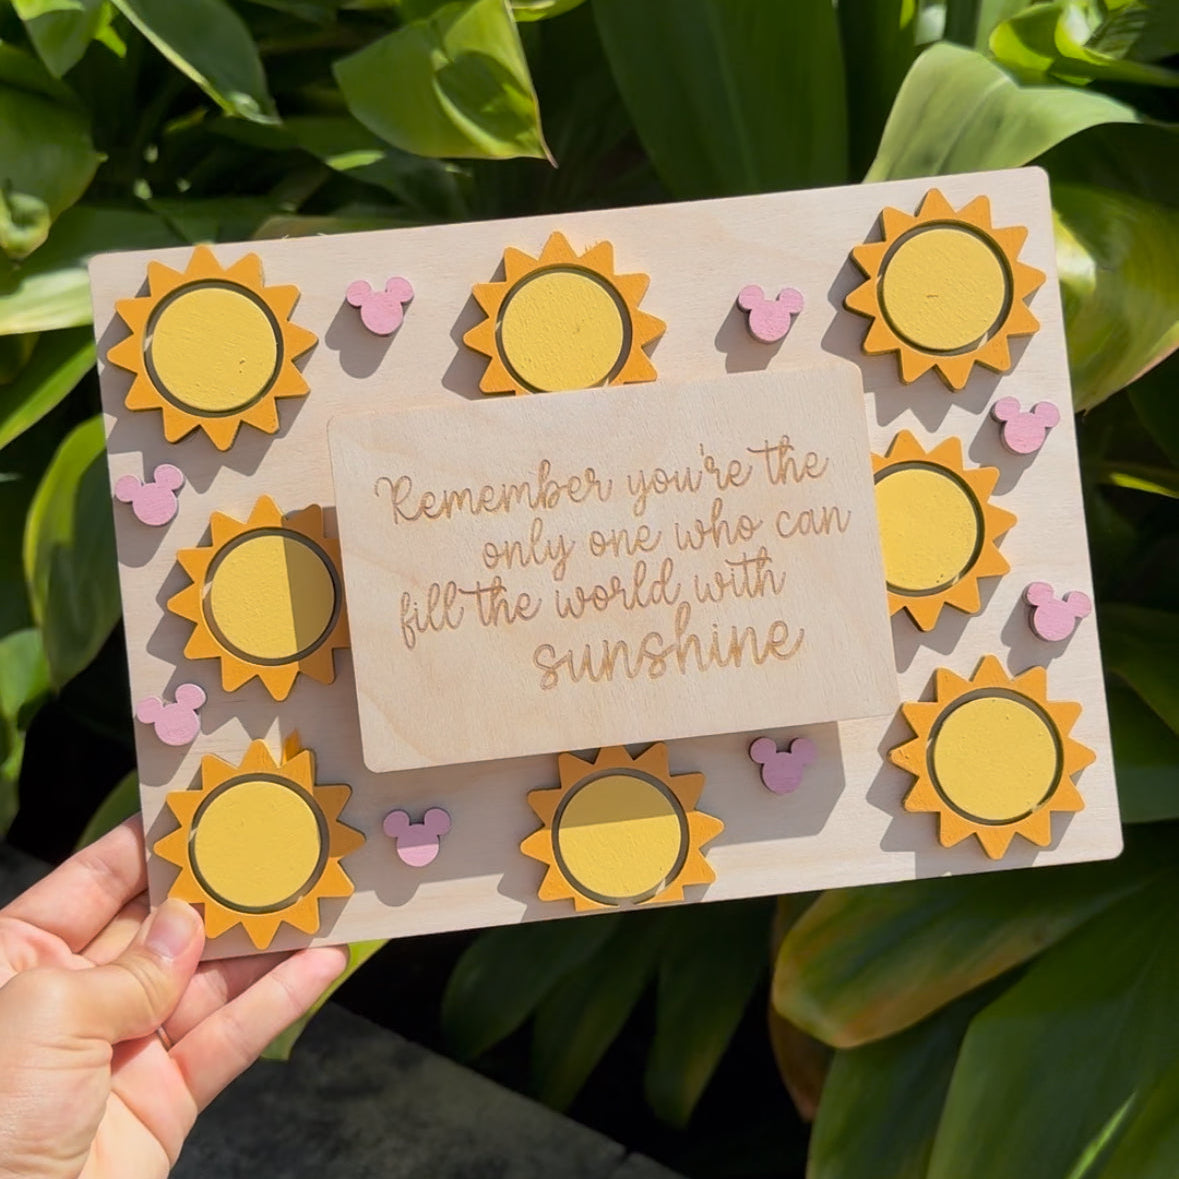 Remember you're the
only one who can
fill the world with
sunshine